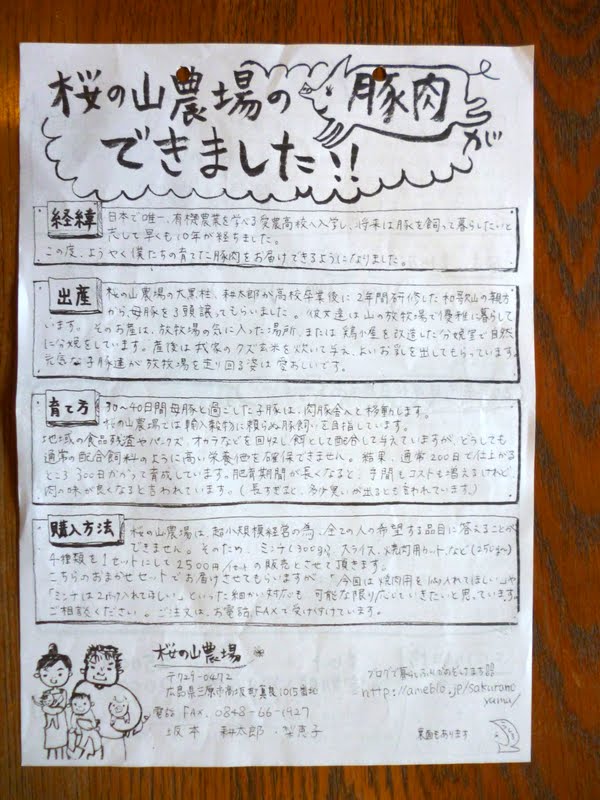 桜の山農場の豚肉が
できました!!
経緯
日本で唯一、有機農業を学べる愛農高校へ入学し、将来は豚を飼って暮らしたいと
志して早くも10年が経ちました。
この度、ようやく僕たちの育てた豚肉をお届けできるようになりました。
出産
桜の山農場の大黒柱、耕太郎が高校卒業後に2年間研修した和歌山の親方
から、母豚を3頭譲ってもらいました。彼女達は山の放牧場で優雅に暮らして
います。そのお産は、放牧場の気に入った場所、または鶏小屋を改造した分娩室で自然
に分娩をしています。産後は我家のクズ玄米を炊いて与え、よいお乳を出してもらっています。
元気な子豚達が放牧場を走り回る姿は愛おしいです。
育て方
30〜40日間母豚と過ごした子豚は、肉豚舎へと移動します。
桜の山農場では輸入穀物に頼らぬ豚飼いを目指しています。
地域の食品残渣やパンクズ、オカラなどを回収し餌として配合して与えていますが、どうしても
通常の配合飼料のように高い栄養価を確保できません。結果、通常200日で仕上がる
ところ300日かかって育成しています。肥育期間が長くなると、手間もコストも増えるけれど
肉の味が良くなると言われています。(長すぎると、多少臭いが出るとも言われています。)
購入方法
桜の山農場は、超小規模経営の為、全ての人の希望する品目に答えることが
できません。そのため、ミンチ(300g)、スライス、焼肉用カット、など(250g〜)
4種類を1セットにして2500円/セットの販売とさせて頂きます。
こちらのおまかせセットでお届けさせてもらいますが、「今回は焼肉用を1つ入れてほしい」や
「ミンチは2つ入れてほしい」といった細かい対応も可能な限り応じていきたいと思っています。
ご相談ください。ご注文は、お電話、FAXで受け付けています。
桜の山農場
〒729-0472
広島県三原市高坂町真良1015番地
電話 FAX. 0848-66-1927
坂本 耕太郎・
ブログで暮らし
http://ameblo.jp/sakurano
yama/
裏面もあります